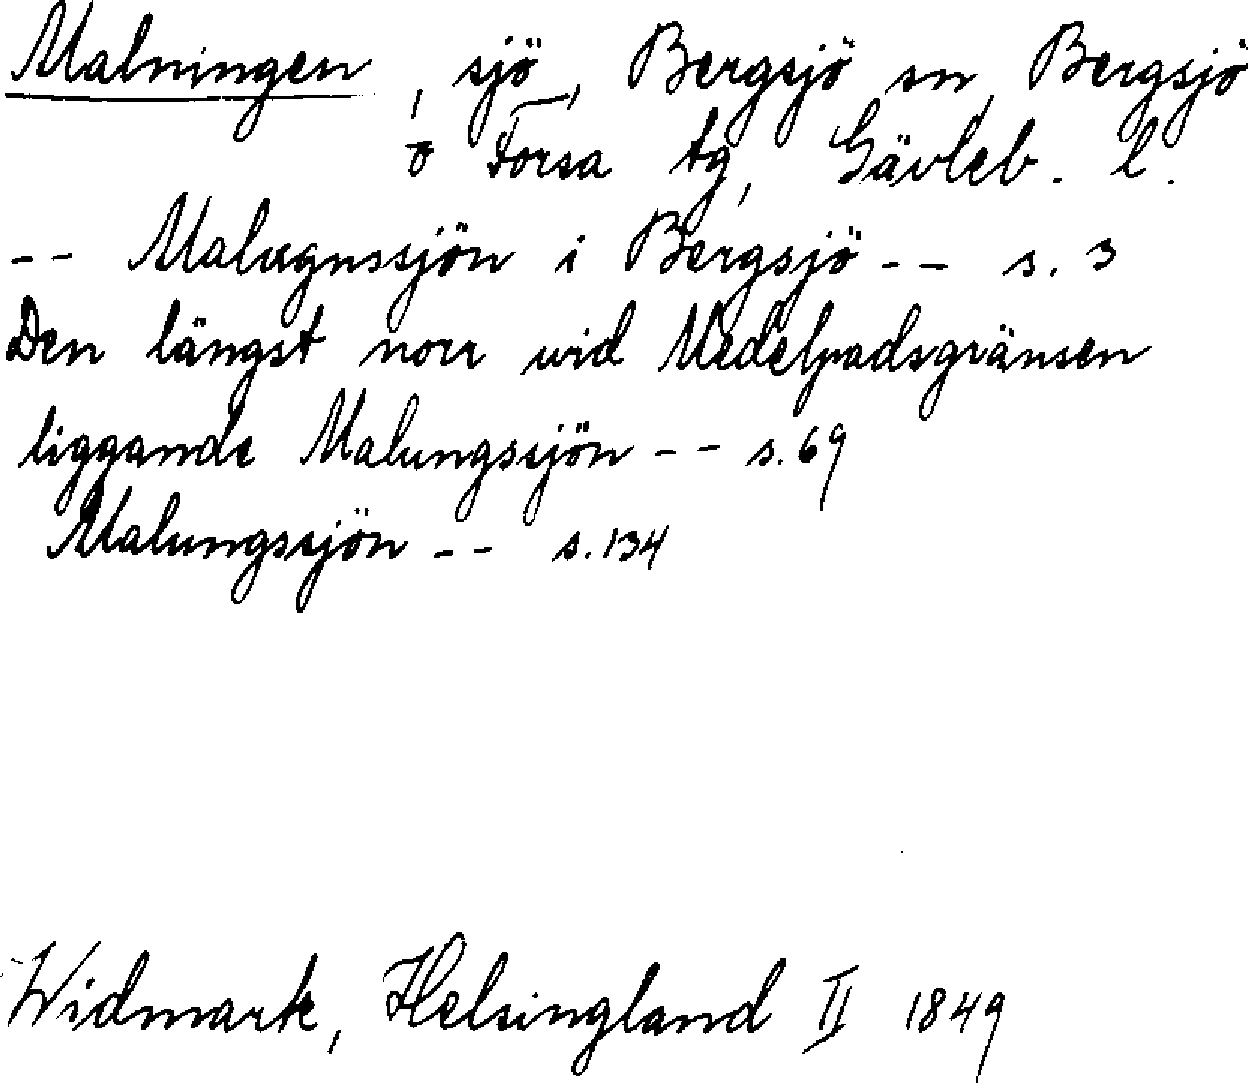 Malningen, sjö, Bergsjö sn, Bergsjö
o Forsa tg, Gävleb. l.
-- Malugnssjön i Bergsjö -- s. 3
Den längst norr wid Medelpadsgränsen
liggande Malungssjön -- s. 69
Malungssjön -- s. 134
Widmark, Helsingland II 1849